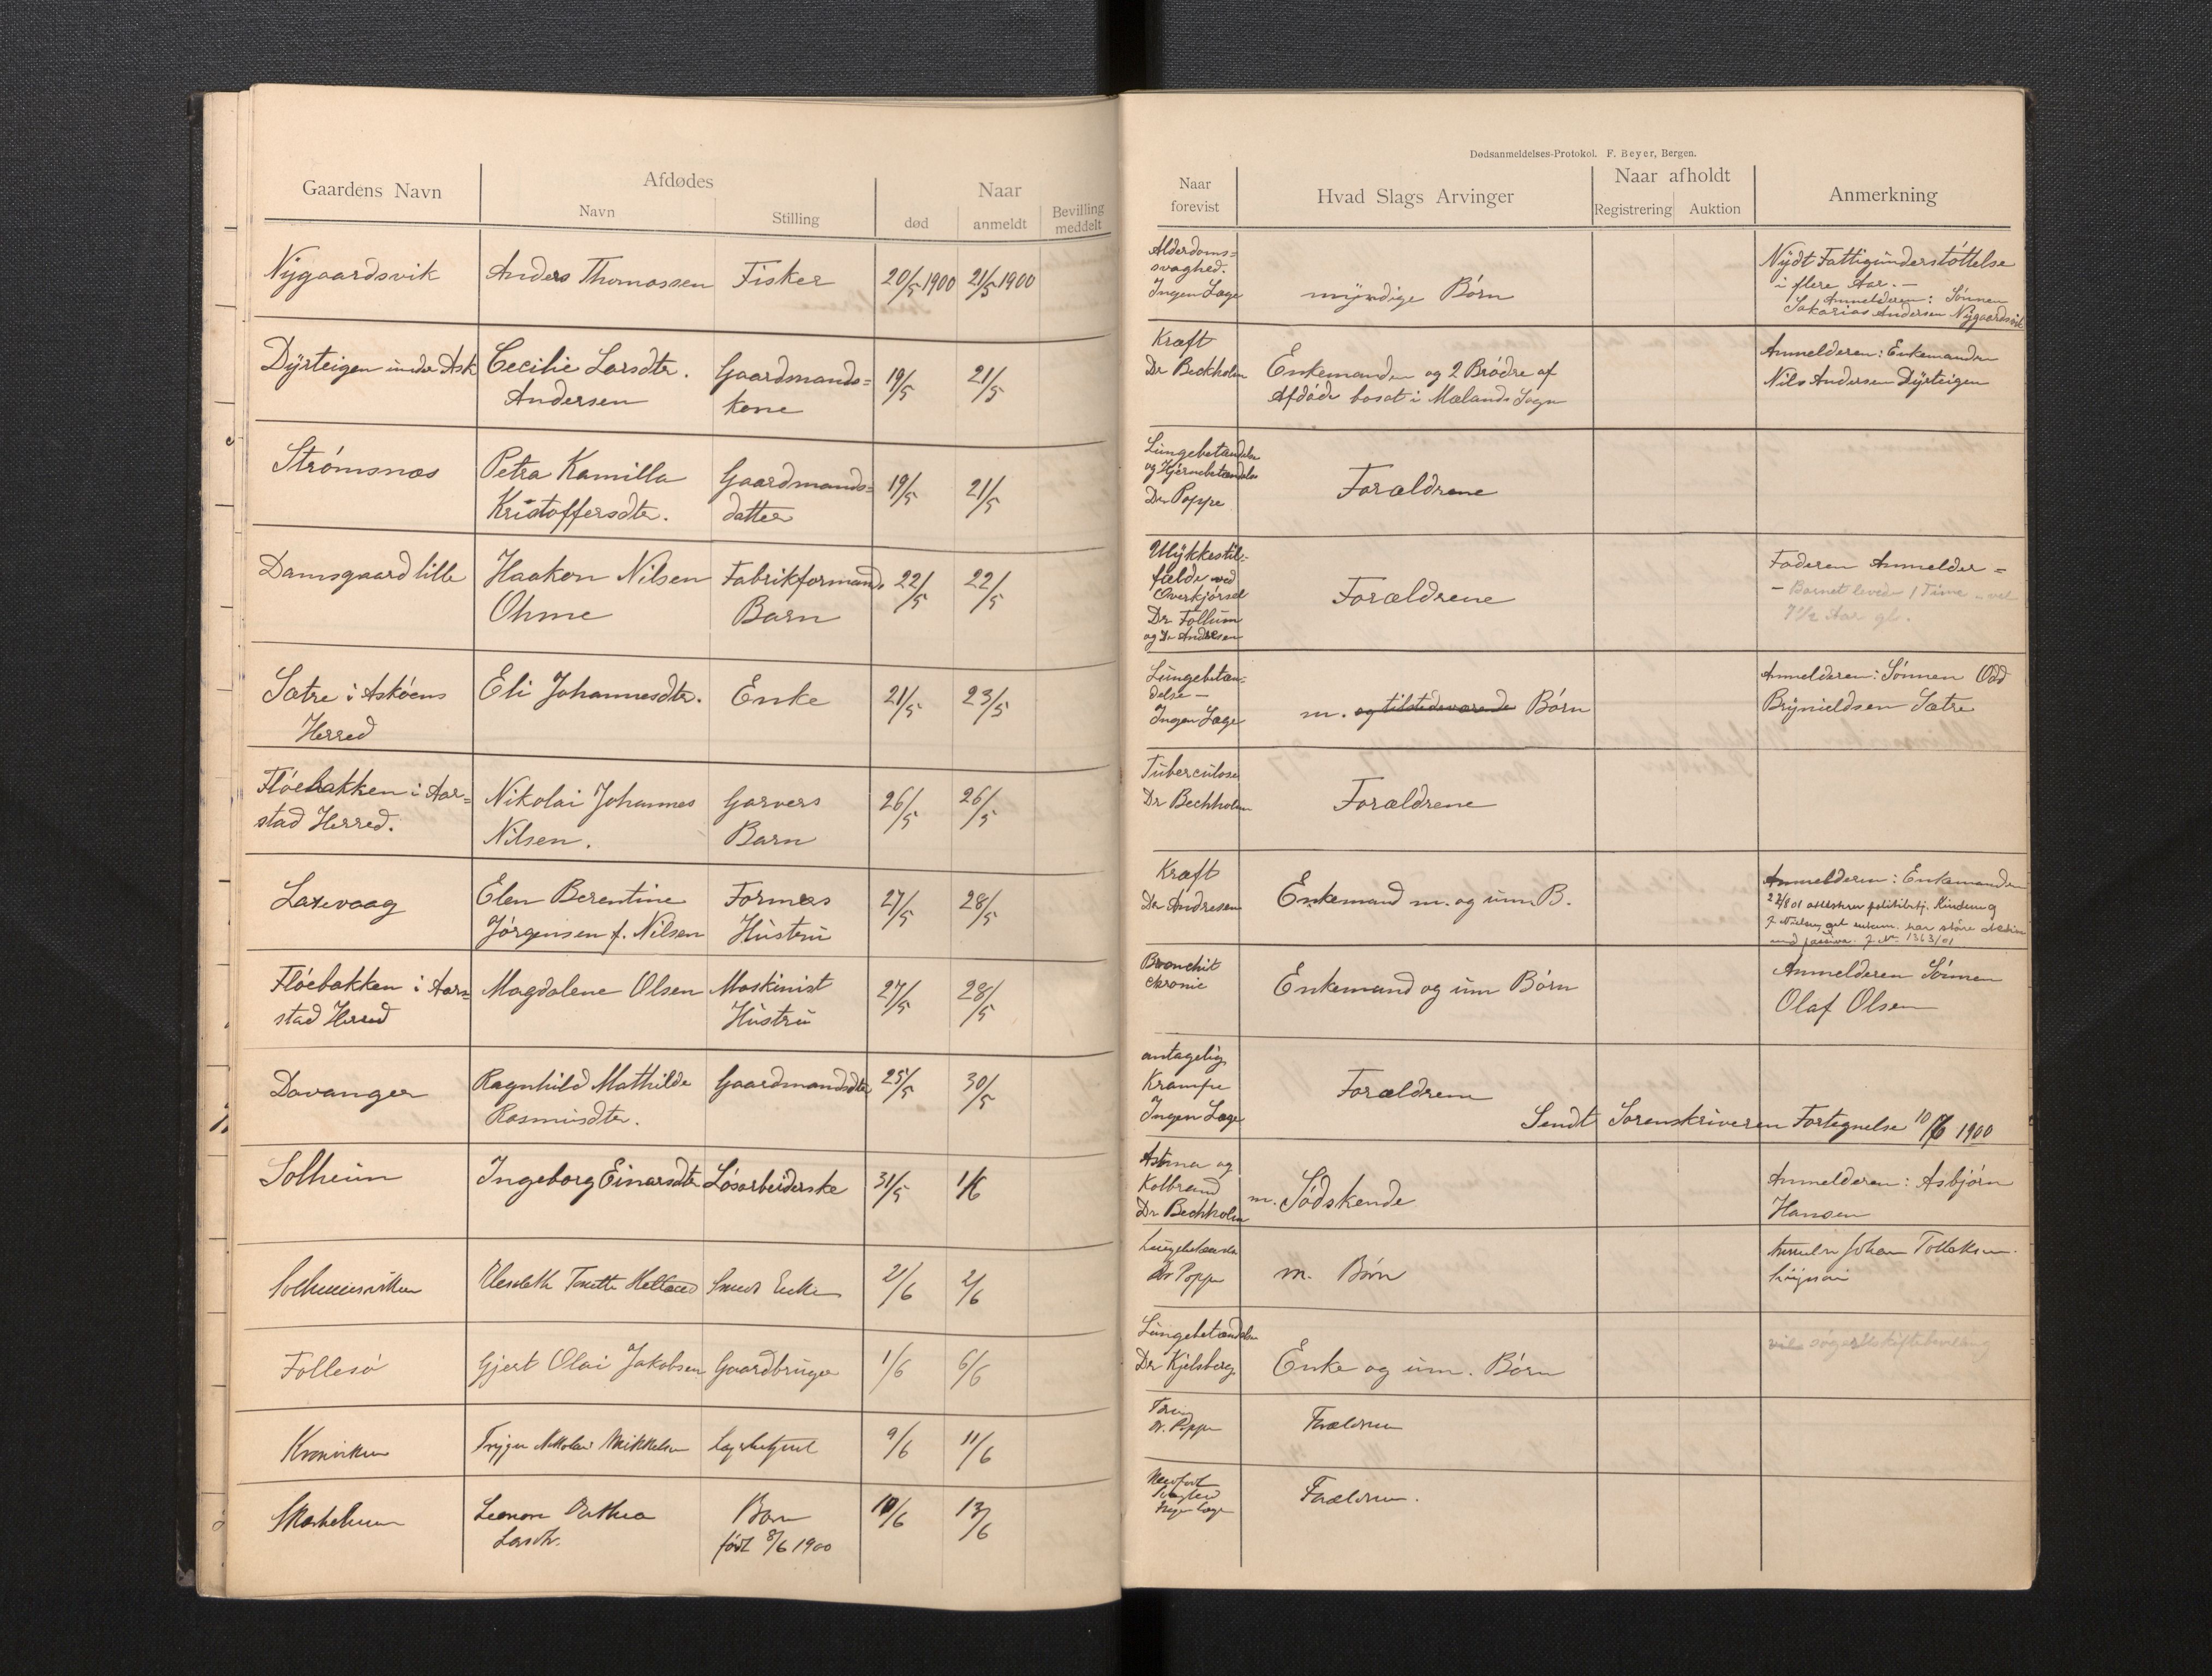 Dødsanmeldelses-Protokol. F. Beyer, Bergen.
Gaardens Navn
Afdødes
Navn
Stilling
Naar
død
anmeldt
Bevilling
meddelt
Naar
forevist
Hvad Slags Arvinger
Naar afholdt
Registrering
Auktion
Anmerkning
Nygaardsvik
Anders Thomassen
Fisker
20/5 1900
21/5 1900
Alderdoms=
svaghed.
Ingen Læge
myndige Børn
Nydt Fattigunderstøttelse
i flere Aar. —
Anmelderen: Sønnen
Sakarias Andersen Nygaardsvik
Dyrteigen under Ask
Cecilie Larsdtr.
Andersen
Gaardmands=
kone
19/5
21/5
Kræft
Dr Beckholm
Enkemanden og 2 Brødre af
Afdøde bosat i Mælands Sogn
Anmelderen: Enkemanden
Nils Andersen Dyrteigen
Strømsnæs
Petra Kamilla
Kristoffersdtr.
Gaardmands=
datter
19/5
21/5
Lungebetændelse
og Hjernebetændelse
Dr Poppe
Forældrene
Damsgaard lille
Haakon Nilsen
Ohme
Fabrikformands
Barn
22/5
22/5
Ulykkestil-
fælde ved
Overkjørsel
Dr Follum
og Dr Andresen
Forældrene
Faderen Anmelder =
— Barnet levede 1 Time
7 1/2 Aar gl.
Sætre i Askøens
Herred
Eli Johannesdtr.
Enke
21/5
23/5
Lungebetæn-
delse —
Ingen Læge
m. og tilstedeværende Børn
Anmelderen: Sønnen Odd
Brynieldsen Sætre
Fløebakken i Aar=
stad Herred.
Nikolai Johannes
Nilsen.
Garvers
Barn
26/5
26/5
Tuberculose
Dr Bechholm
Forældrene
Laxevaag
Elen Berentine
Jørgensen f. Nilsen
Formers
Hustru
27/5
28/5
Kræft
Dr Andresen
Enkemand m. og um B.
Anmelderen: Enkemanden
J. No. 1363/01
Fløebakken i Aar=
stad Herred
Magdalene Olsen
Maskinist
Hustru
27/5
28/5
Bronchit
chronic
Enkemand og um Børn
Anmelderen Sønnen
Olaf Olsen
Davanger
Ragnhild Mathilde
Rasmusdtr.
Gaardmandsdtr
25/5
30/5
antagelig
Krampe
Ingen Læge
Forældrene
Sendt Sorenskriveren Fortegnelse 10/6 1900
Solheim
Ingeborg Einarsdtr
Løsarbeiderske
31/5
1/6
Astma og
Kolbrand
Dr Bechholm
m. Sødskende
Anmelderen: Asbjørn
Hansen
Solheimsviken
Elesabeth
Smeds Enke
2/6
2/6
Lungebetændelse
Dr Poppe
m. Børn
Johan
Follesø
Gjert Olai Jakobsen
Gaardbruger
1/6
6/6
Lungebetændelse
Dr Kjelsberg
Enke og um. Børn
Kronviken
Trygve Nikolai Mikkelsen
9/6
11/6
Tæring
Dr. Poppe
Forældrene
Leonore Dorthea
Larsdtr.
Barn
født 8/6 1900
10/6
13/6
Ingen Læge
Forældrene.